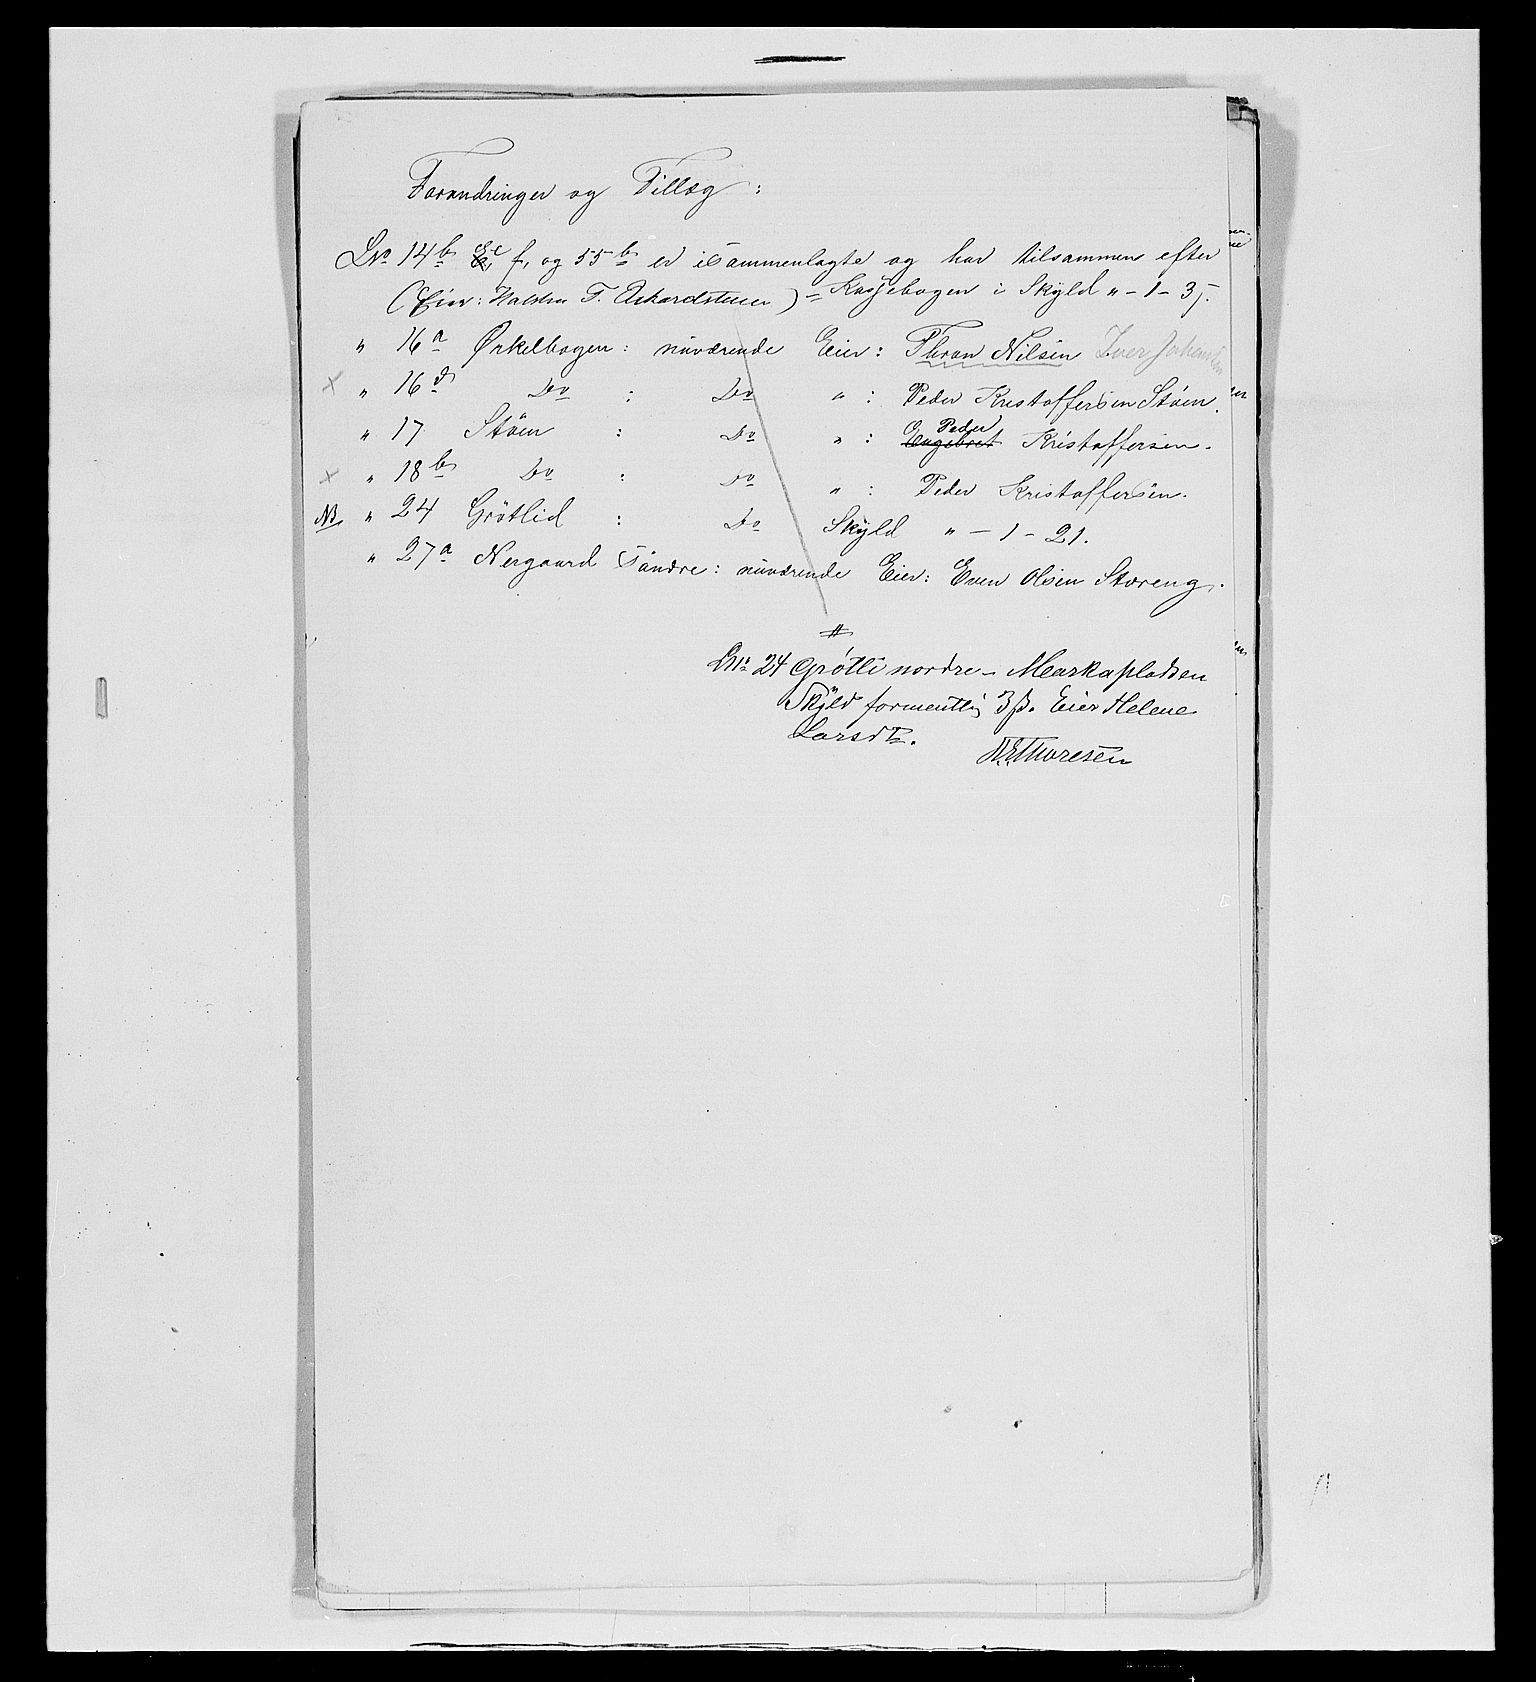 Forandringer og Tillæg:
LNo 14b c, f, og 55b er sammenlagte og har tilsammen efter
(Eier: Halsten T. ) = Kassebogen i Skyld " - 1 - 35.
" 16a Ørkelbogen: nuværende Eier: Thron Nilsen Iver Johansen
x " 16d Do : Do " : Peder Kristoffersen Støen.
" 17 Støen : Do " : Engebret Peder Kristoffersen.
x " 18b Do : Do " : Peder Kristoffersen.
NB. " 24 Grøtlid : Do Skyld " - 1 - 21.
" 27a Nergaard Søndre: nuværende Eier: Even Olsen Storeng.
#
LNo 24 Grøtli nordre - Markapladsen
Skyld formentlig 3 β. Eier Helene
Larsdtr.
Thoresen